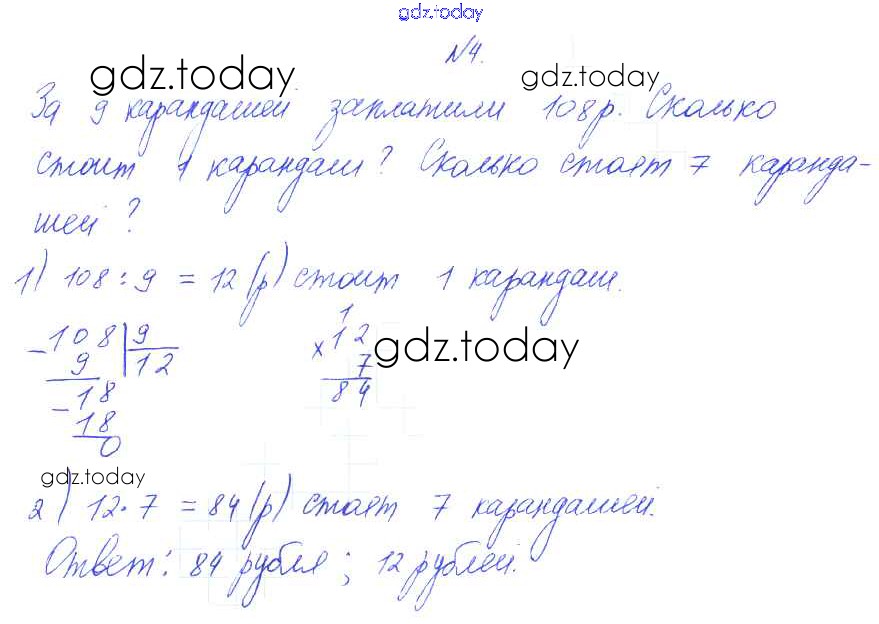 gdz.today
№4.
gdz.today gdz.today
За 9 карандашей заплатили 108р. Сколько
стоит 1 карандаш? Сколько стоят 7 каранда-
шей?
1) 108 : 9 = 12 (р) стоит 1 карандаш.
1
- 108 | 9 × 12
9 12 7
gdz.today
- 18 84
18
0
gdz.today
2) 12 · 7 = 84 (р) стоят 7 карандашей.
Ответ: 84 рубля ; 12 рублей.